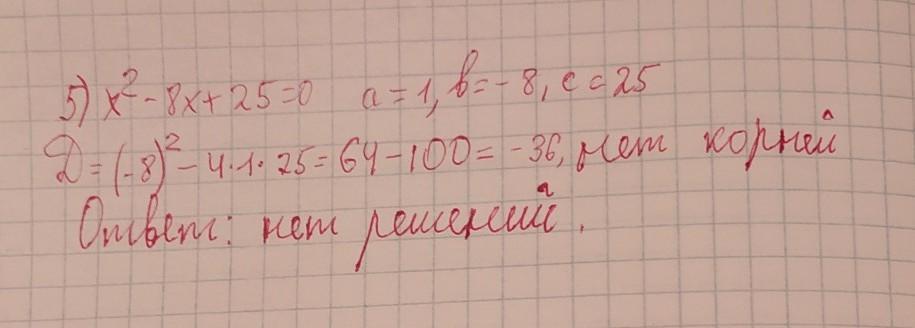 5) x² - 8x + 25 = 0 a = 1, b = - 8, c = 25
D = (-8)² - 4·1·25 = 64 - 100 = -36, нет корней
Ответ: нет решений.